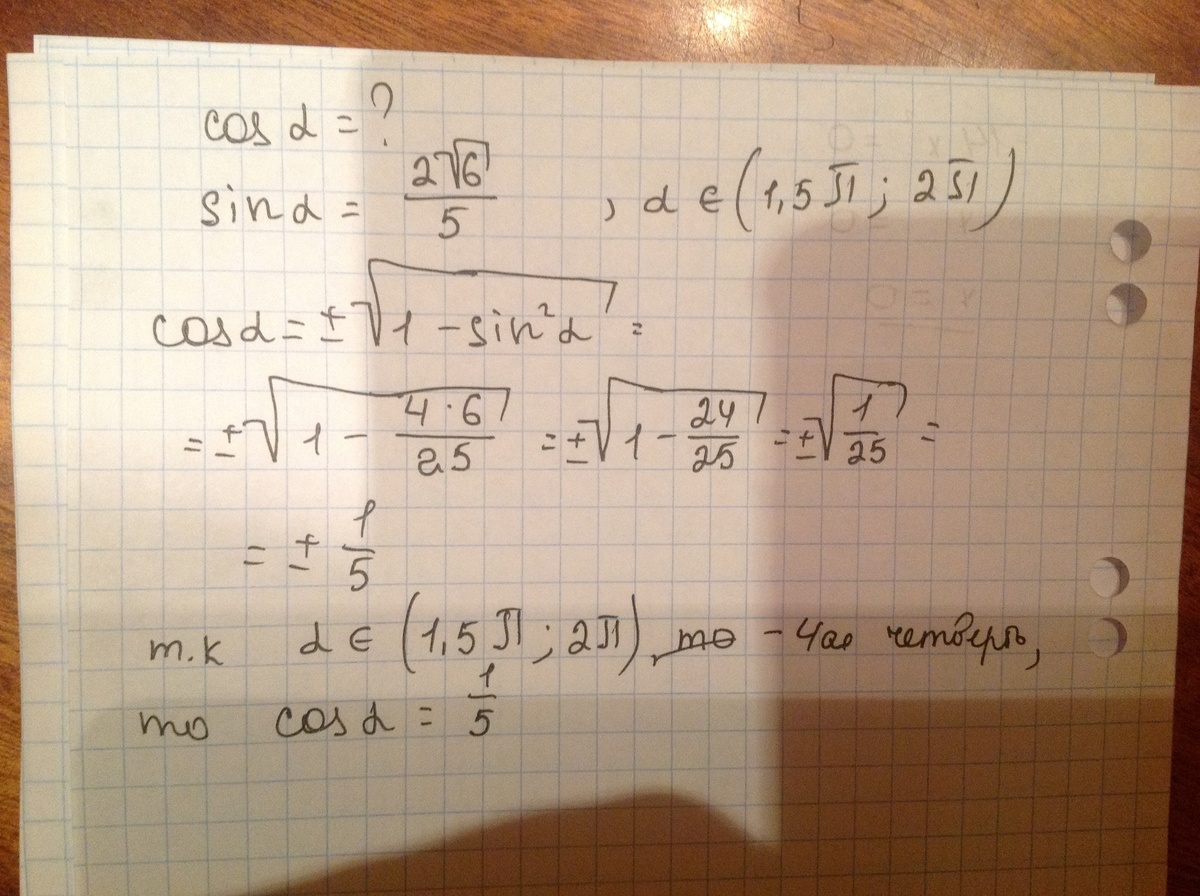 cos α = ?
sin α = 2√6/5 , α ∈ (1,5π ; 2π)
cos α = ±√(1 − sin²α) =
= ±√(1 − 4·6/25) = ±√(1 − 24/25) = ±√(1/25) =
= ± 1/5
т.к α ∈ (1,5π ; 2π), то - 4ая четверть,
то cos α = 1/5